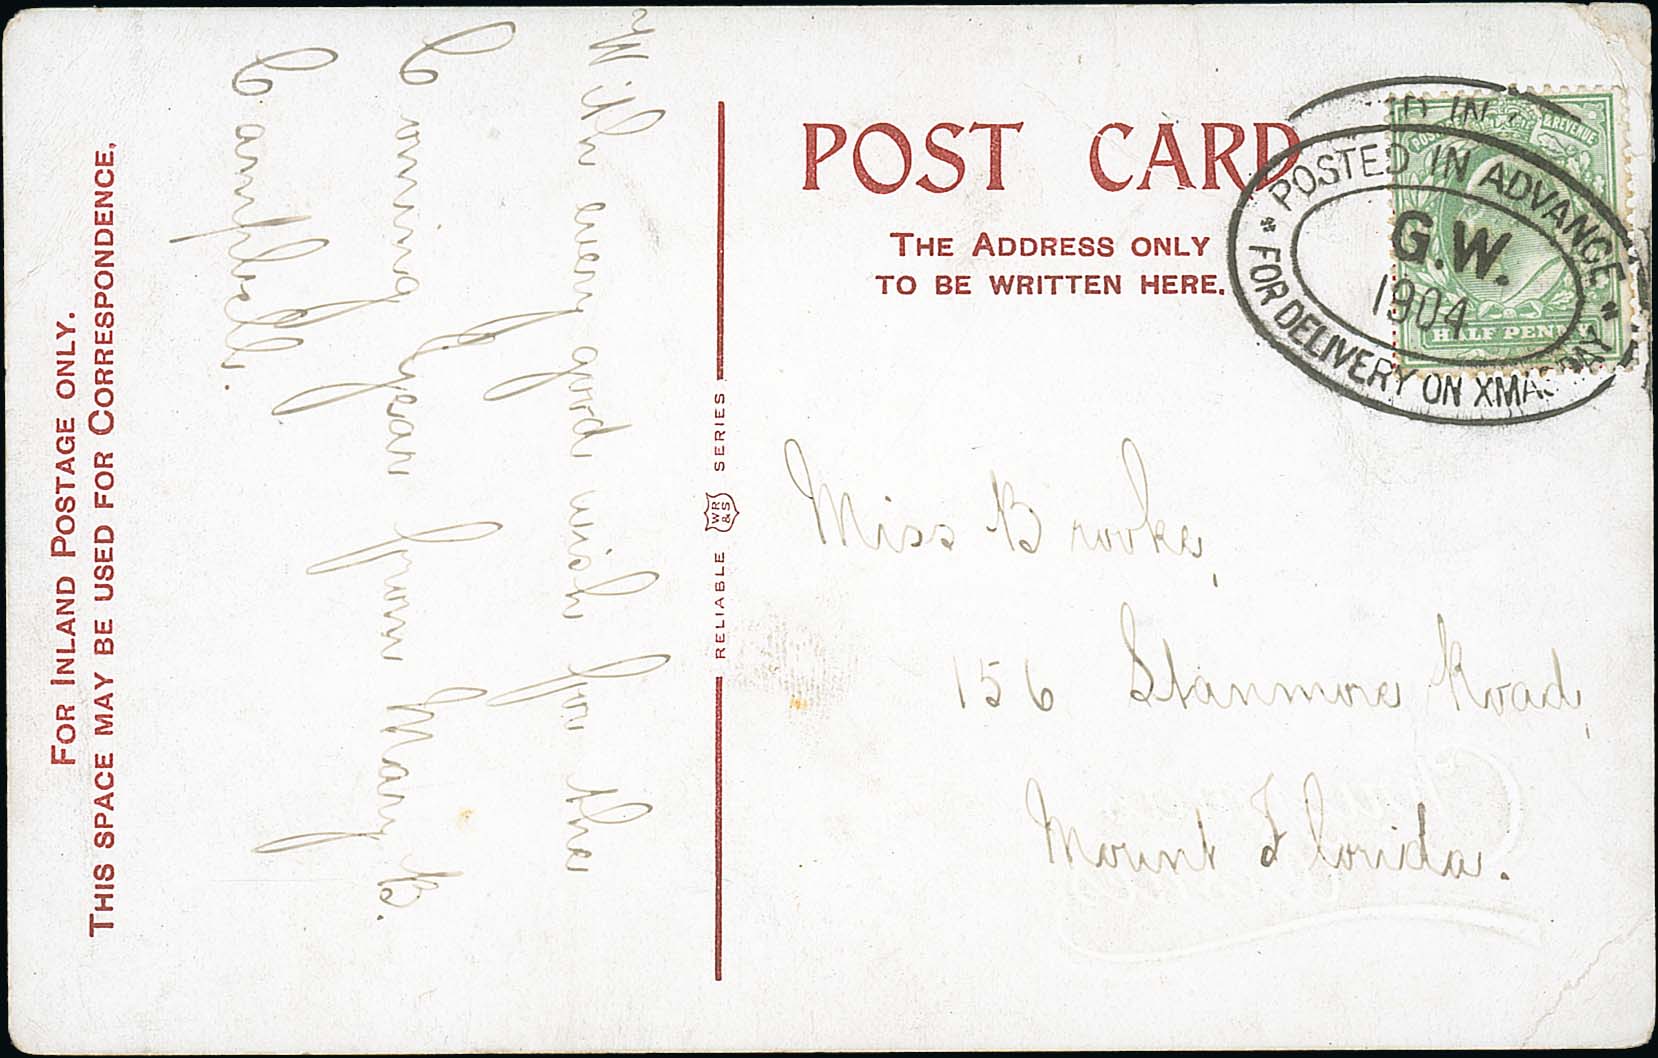 FOR INLAND POSTAGE ONLY.
THIS SPACE MAY BE USED FOR CORRESPONDENCE,
With every good wish for the
Coming Year from Mary B.
Campbell.
RELIABLE WR &S SERIES
POST CARD
THE ADDRESS ONLY
TO BE WRITTEN HERE.
D IN
POSTED IN ADVANCE
G.W.
1904
FOR DELIVERY ON XMAS DAY
& REVENUE
HALF PENNY
Miss Brooke,
156 Stanmore Road,
Mount Florida.